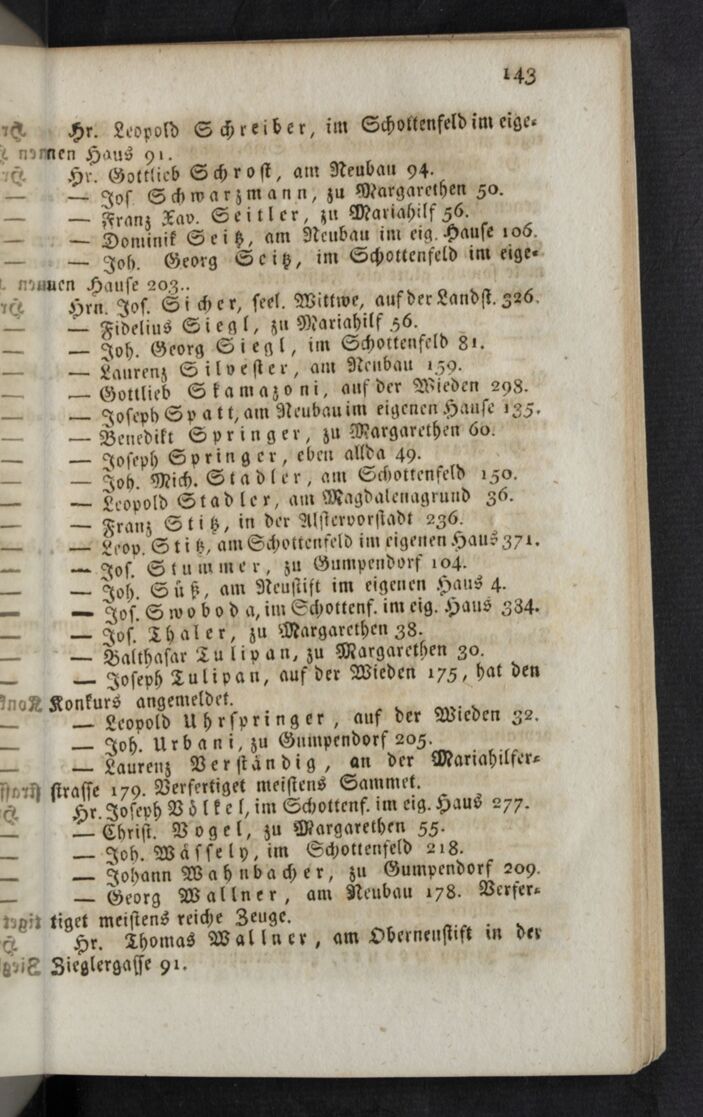 143
Hr. Leopold Schreiber, im Schottenfeld im eige-
nen Haus 91.
Hr. Gottlieb Schrost, am Neubau 94.
— Jos. Schwarzmann, zu Margarethen 50.
— Franz Xav. Seitler, zu Mariahilf 56.
— Dominik Seitz, am Neubau im eig. Hause 106.
— Joh. Georg Seitz, im Schottenfeld im eige-
nen Hause 203..
Hrn. Jos. Sicher, seel. Wittwe, auf der Landst. 326.
— Fidelius Siegl, zu Mariahilf 56.
— Joh. Georg Siegl, im Schottenfeld 81.
— Laurenz Silvester, am Neubau 159.
— Gottlieb Skamazoni, auf der Wieden 298.
— Joseph Spatt, am Neubau im eigenen Hause 135.
— Benedikt Springer, zu Margarethen 60.
— Joseph Springer, eben allda 49.
— Joh. Mich. Stadler, am Schottenfeld 150.
— Leopold Stadler, am Magdalenagrund 36.
— Franz Stitz, in der Alstervorstadt 236.
— Leop. Stitz, am Schottenfeld im eigenen Haus 371.
— Jos. Stummer, zu Gumpendorf 104.
— Joh. Süß, am Neustift im eigenen Haus 4.
— Jos. Swoboda, im Schottenf. im eig. Haus 384.
— Jos. Thaler, zu Margarethen 38.
— Balthasar Tulipan, zu Margarethen 30.
— Joseph Tulipan, auf der Wieden 175, hat den
Konkurs angemeldet.
— Leopold Uhrspringer, auf der Wieden 32.
— Joh. Urbani, zu Gumpendorf 205.
— Laurenz Verständig, an der Mariahilfer-
strasse 179. Verfertiget meistens Sammet.
Hr. Joseph Völkel, im Schottenf. im eig. Haus 277.
— Christ. Vogel, zu Margarethen 55.
— Joh. Wässely, im Schottenfeld 218.
— Johann Wahnbacher, zu Gumpendorf 209.
— Georg Wallner, am Neubau 178. Verfer-
tiget meistens reiche Zeuge.
Hr. Thomas Wallner, am Oberneustift in der
Zieglergasse 91.